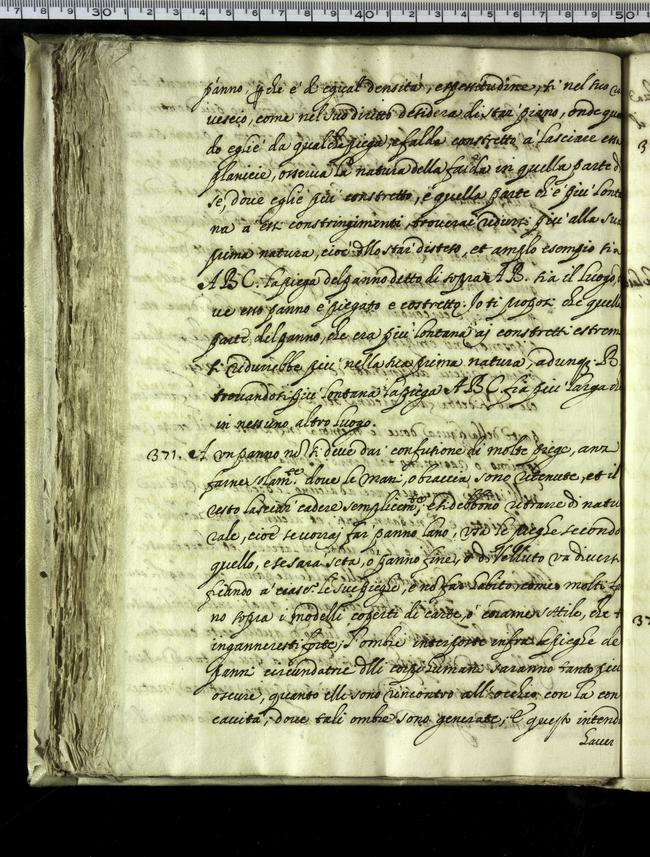 panno, che è de equal densità, e spessitudine, si nel suo
vescio, come nel suo diritto desidera di star piano, onde quā
do eglie da qualche piega, o falda constretto à lasciare essa
planicie, osserva la natura della falda in quella parte di
se, dove eglie più constretto, e quella parte ch'è più lonta
na à essi constringimenti, troverai ridursi più alla sua
prima natura, cioè dello star disteso, et amplo esempio sia
ABC. la piega del panno detto di sopra AB. sia il luogo
ve esso panno è piegato e costretto. Io ti proposi che quella
parte del panno, che era più lontana ai constretti estremi
si ridurebbe più nella sua prima natura, adunque B
trovandosi più lontana la piega ABC. sia più larga
in nessuno altro luogo.
371. A un panno nō si deve dar confusione di molte pieghe, anzi
farne solam.te dove le mani, o braccia sono ritenute, et il
resto lasciar cadere semplicem.te, et si debbono ritrarre di natu
rale, cioè se vorrai far panno lano, usa le pieghe secondo
quello, e se sarà seta, o panno fine, o di Velluto va diversi
ficando à ciascuno le sue pieghe, e nō far habito, come molti fa
no sopra i modelli coperti di carte, o corame sottile, che t
inganneresti forte, l'ombre interposte infra le pieghe de
panni circundatrici delli corpi humani saranno tanto più
oscure, quanto elli sono rincontro all'occhio con la con
cavità, dove tali ombre sono generate, e questo intend
haver